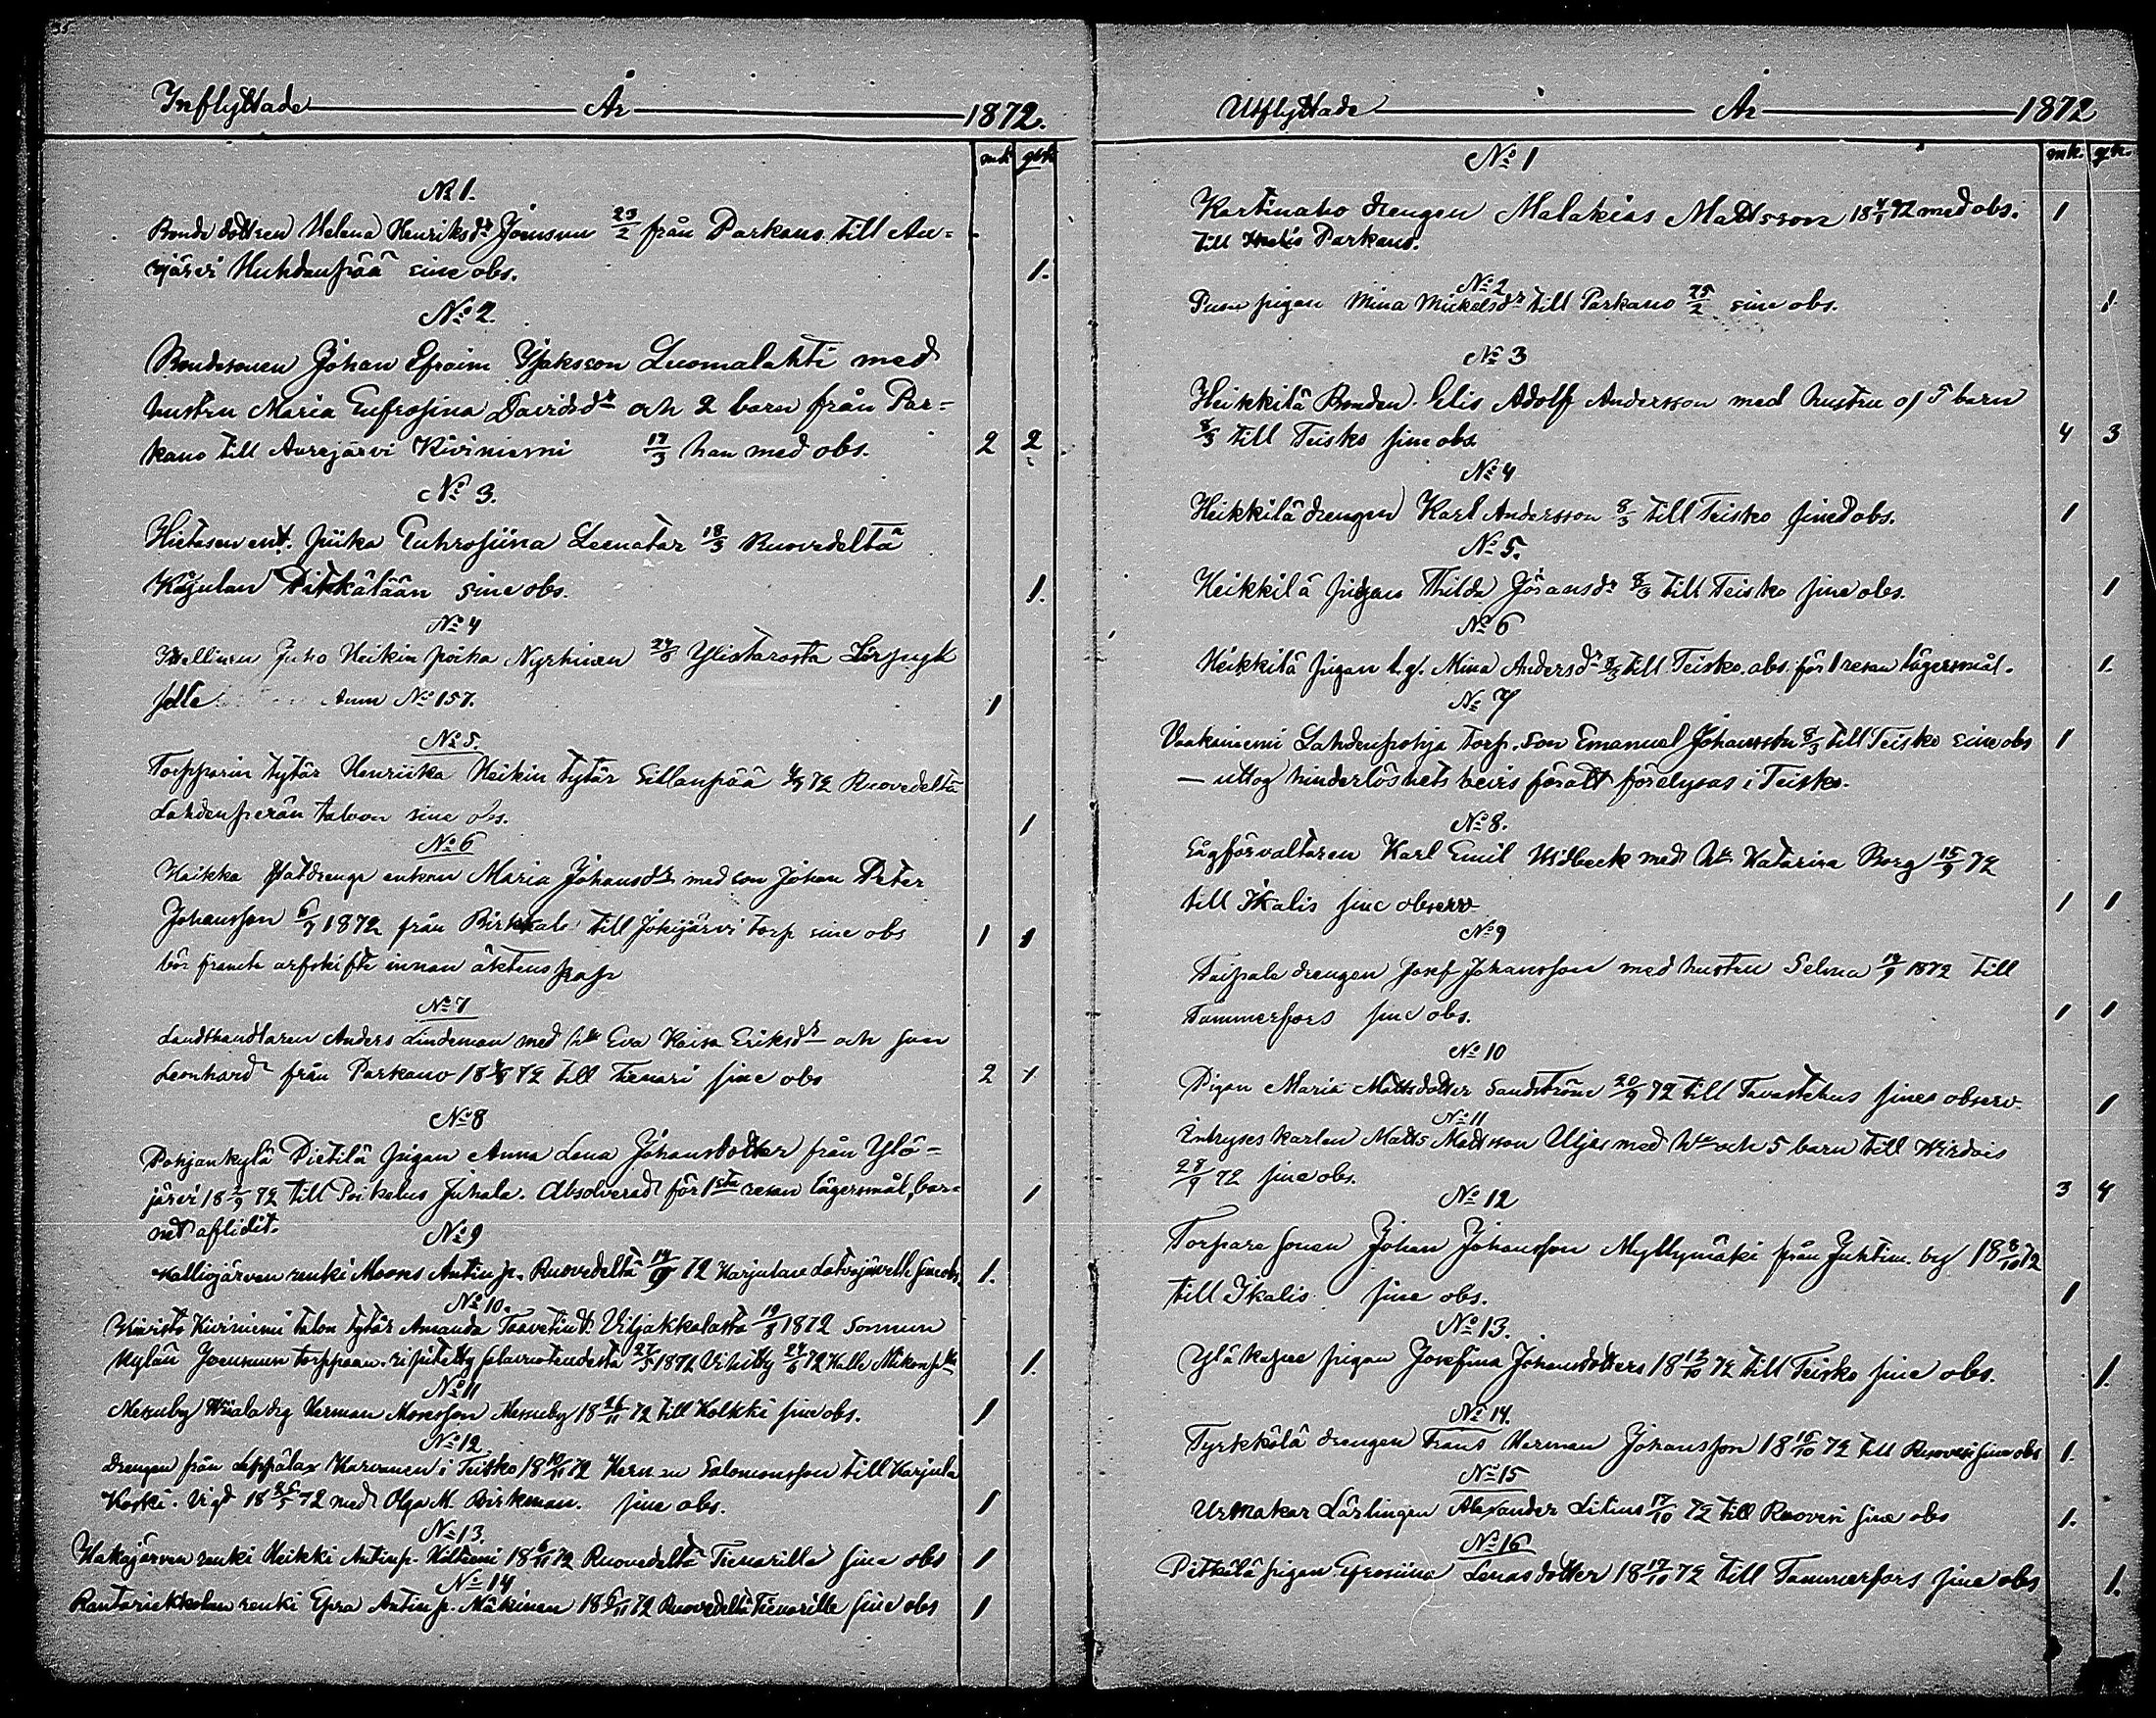 Inflyttade År 1872.
mk qvk
No 1.
Bonde dottren Helena Henriksdr Joensuu 23/2 från Parkano till Au=
rejärvi Huhdanpää sine obs. 1.
No 2.
Bondesonen Johan Efraim Isaksson Luomalahti med
hustru Maria Eufrosina Davidsdr och 2 barn från Par=
kano till Aurejärvi Kiviniemi 17/3 han med obs. 2 2
No 3.
Hietasen ent. piika Euhrosiina Leenatar 18/3 Ruovedeltä
Pitkälään sine obs. 1.
No 4
Itsellinen Juho Heikin poika Nyrhinen Ylistarosta
Anm No 157. 1
No 5.
Torpparin tytär Henriika Heikin tytär Sillanpää 72 Ruovedeltä
Lahdenperän taloon sine obs. 1
No 6
enkan Maria Johansdr med son Johan Peter
Johansson 6/9 1872 från Birkkala till Jokijärvi torp sine obs 1 1
bör framte arfskifte innan äktenskap
No 7
Landthandlaren Anders Lindeman med hu Eva Kaisa Eriksdr och son
Leonhard från Parkano 72 till Tienari sine obs 2 1
No 8
Pohjankylä Pietilä pigan Anna Lena Johansdotter från Ylö=
järvi 72 till Poikelus Juhala. Absolverad för 1sta resan lägersmål, bar=
net aflidit. 1
No 9
Kalliojärven renki Mooses Antin p. Ruovedeltä 14/9 72 Karjulan sine obs. 1.
No 10.
Kiviniemi talon tytär Amanda Taavetin t. Viljakkalasta 1872 Sommun
Kylän Joensuun torppaan. 1872 Vihitty 72 Kalle 1.
No 11
Messuby dg Herman Mosesson Messuby 18 26/11 72 till Kolkki sine obs. 1
No 12
Drengen från i Teisko 18 72 Herman Salomonsson till Karjula
Koski. Vigd 72 med Olga M. Birkman. sine obs. 1
No 13.
Hakajärven renki Heikki Antinp. 18 6/11 72 Ruovedeltä Tienarilla sine obs 1
No 14
renki Epra Antin p. Mäkinen 18 6/11 72 Ruovedeltä Tienarille sine obs 1
Utflyttade År 1872
mk. qk.
No 1
Kartinaho drengen Malakias Mattsson 72 med obs. 1
till Parkano.
No 2
pigan Mina Mickelsdr till Parkano 25/2 sine obs. 1
No 3
Heikkilä Bonden Elis Adolf Andersson med hustru o 5 barn
8/3 till Teisko sine obs 4 3
No 4
Heikkilä drengen Karl Andersson 8/3 till Teisko sine obs. 1
No 5.
Heikkilä pigan Thilda Göransdr 8/3 till Teisko sine obs. 1
No 6
Heikkilä pigan Mina Andersdr 8/3 till Teisko. abs. för 1 resan lägersmål. 1.
No 7
Vaakaniemi Lahdenpohja torp. son Emanuel Johansson 8/3 till Teisko sine obs 1
— uttog hinderlöshets beivs för att förelysas i Teisko.
No 8.
Sågförvaltaren Karl Emil Widbeck med hu Katarina Borg 15/9 72
till Ikalis sine observ 1 1
No 9
Taipale drengen Josef Johansson med hustru Selma 19/9 1872 till
Tammerfors sine obs. 1 1
No 10
Pigan Maria Mattsdotter Sandström 20/9 72 till Tavastehus sine observ. 1
No 11
Inhyses karlen Matts Mattsson Uljas med hu och 5 barn till Wirdois
28/9 72 sine obs. 3 4
No 12
Torpare sonen Johan Johansson Myllymäki från Juhtim. by 18 8/10 72
till Ikalis sine obs. 1
No 13.
pigan Josefina Johansdotter 18 12/10 72 till Teisko sine obs. 1.
No 14.
Tyrkkölä drengen Frans Herman Johansson 18 16/10 72 till Ruovesi sine obs 1.
No 15
Urmakar Lärlingen Alexander Litius 17/10 72 till Ruovesi sine obs 1.
No 16
Pitkälä pigan Efrosiina Lenas dotter 18 17/10 72 till Tammerfors sine obs 1.